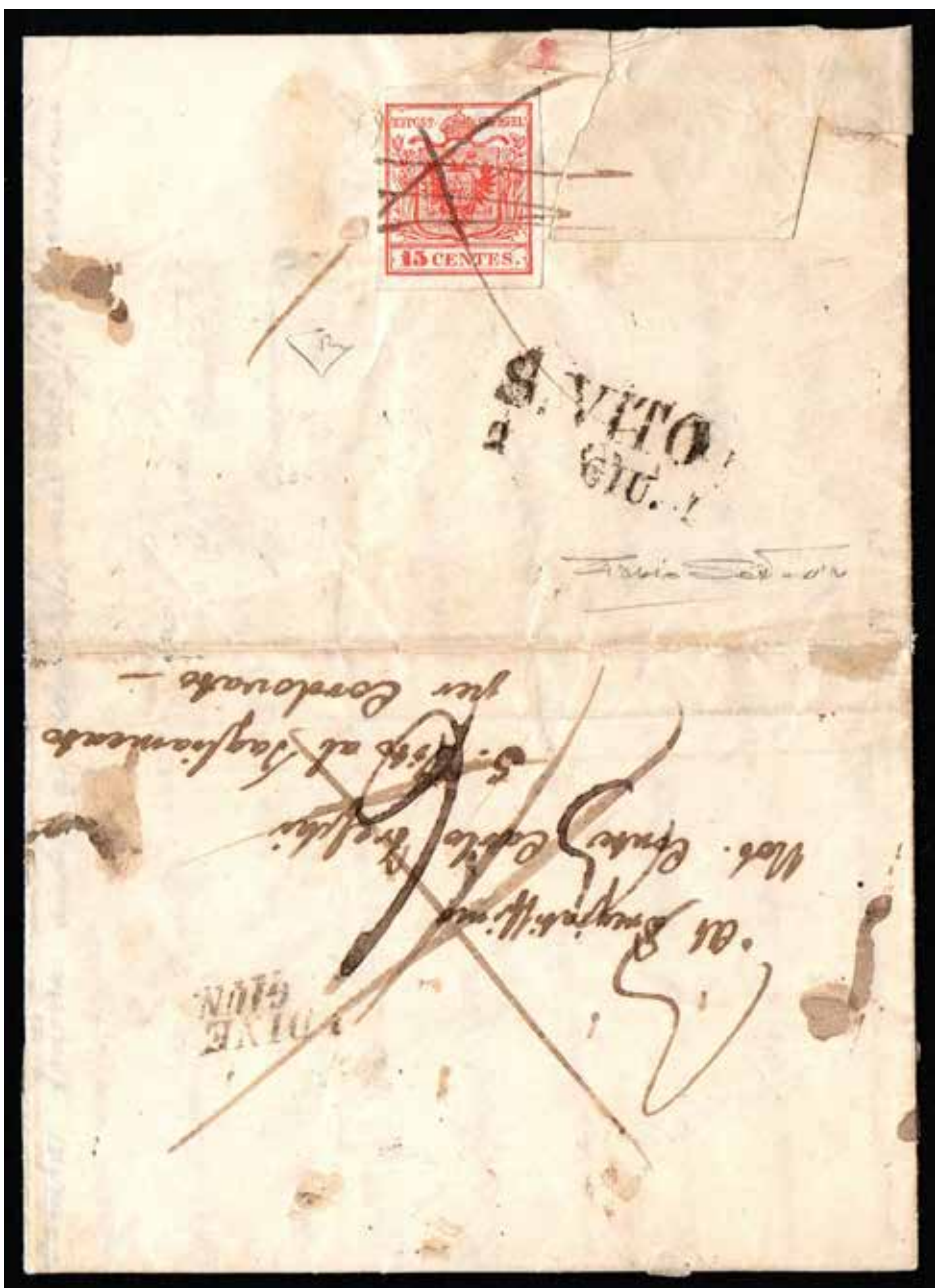 KKPOST-STEMPEL
15 CENTES.
S. VITO
GIU.
Al Pregiatissimo
Nob. Conte Carlo Freschi
S. Vito al Tagliamento
per Cordovato —
UDINE
GIUN.